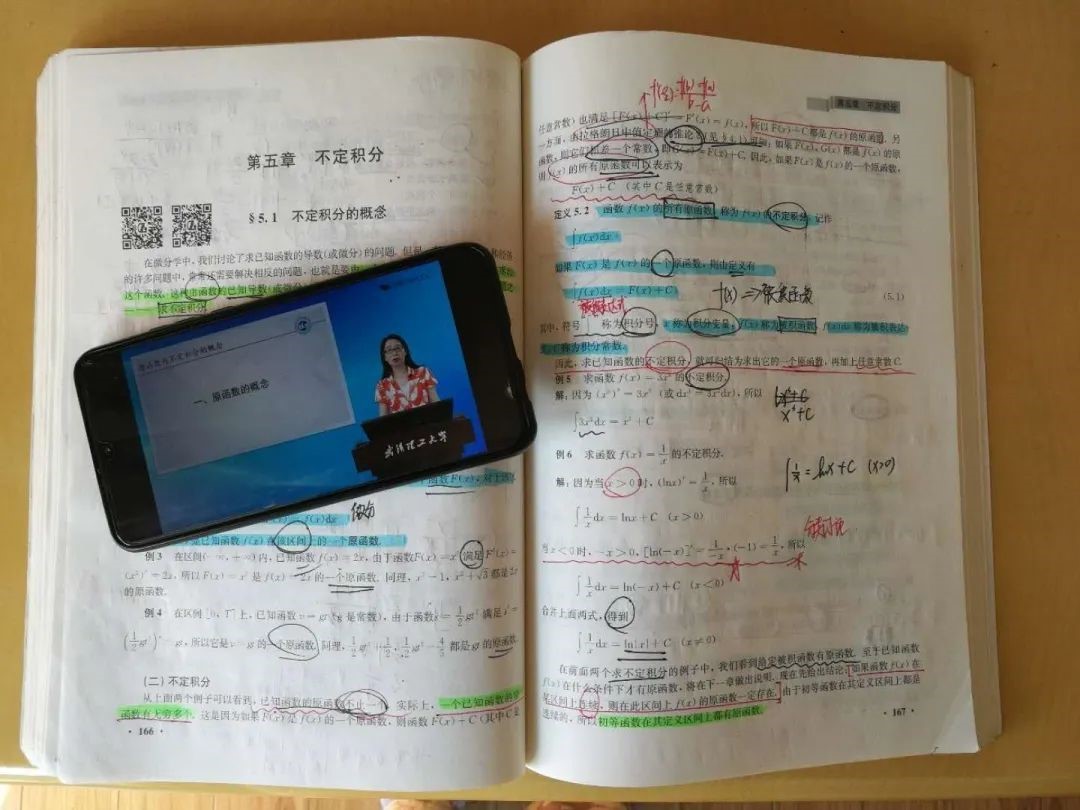 第五章 不定积分
§5.1 不定积分的概念
在微分学中,我们讨论了求已知函数的导数(或微分)的问题.
的许多问题中,常常还需要解决相反的问题,也就是要由
这个函数.
求不定积分
原函数与不定积分的概念
一、原函数的概念
武汉理工大学
函数F(x),对于该
f(x)dx 微分
是已知函数 f(x) 在该区间上的一个原函数.
例3 在区间(-∞,+∞)内,已知函数 f(x) = 2x, 由于函数F(x) = x² 满足 F'(x) =
(x²)' = 2x, 所以 F(x) = x² 是 f(x) = 2x 的一个原函数. 同理, x² - 1, x² + √3 都是 2x
的原函数.
例4 在区间[0, T]上,已知函数 v = gt (g 是常数), 由于函数 s = 1/2 gt² 满足 s' =
(1/2 gt²)' = gt, 所以它是 v = gt 的一个原函数. 同理, 都是 gt 的原函数.
(二) 不定积分
从上面两个例子可以看到,已知函数的原函数不止一个. 实际上,一个已知函数的原
函数有无穷多个. 这是因为如果 F(x) 是 f(x) 的一个原函数, 则函数 F(x) + C (其中 C 是
· 166 ·
第五章 不定积分
任意常数) 也满足 [F(x) + C]' = F'(x) = f(x), 所以 F(x) + C 都是 f(x) 的原函数. 另
一方面,由拉格朗日中值定理的推论(见 §4.1)可知:如果 F(x), G(x) 都是 f(x) 的原
函数,则它们相差一个常数,即 G(x) = F(x)+C. 因此,如果 F(x) 是 f(x) 的一个原函数,
则 f(x) 的所有原函数可以表示为
F(x) + C (其中 C 是任意常数)
定义 5.2 函数 f(x) 的所有原函数,称为 f(x) 的不定积分,记作
∫f(x)dx
如果 F(x) 是 f(x) 的一个原函数, 则由定义有
∫f(x)dx = F(x) + C (5.1)
f(x) ⟹ 被积函数
被积表达式
其中,符号 ∫ 称为积分号, x 称为积分变量, f(x) 称为被积函数, f(x)dx 称为被积表达
式, C 称为积分常数.
因此,求已知函数的不定积分,就可归结为求出它的一个原函数,再加上任意常数 C.
例5 求函数 f(x) = 3x² 的不定积分.
解:因为 (x³)' = 3x² (或 dx³ = 3x²dx), 所以
∫3x²dx = x³ + C
x³+C
例6 求函数 f(x) = 1/x 的不定积分.
解:因为当 x > 0 时, (lnx)' = 1/x, 所以
∫1/x = lnx + C (x>0)
∫1/x dx = lnx + C (x > 0)
分类讨论
当 x < 0 时, -x > 0, [ln(-x)]' = 1/-x · (-1) = 1/x, 所以
∫1/x dx = ln(-x) + C (x < 0)
合并上面两式,得到
∫1/x dx = ln|x| + C (x ≠ 0)
在前面两个求不定积分的例子中,我们看到给定被积函数有原函数. 至于已知函数
f(x) 在什么条件下才有原函数,将在下一章做出说明. 现在先给出结论:如果函数 f(x) 在
某区间上连续,则在此区间上 f(x) 的原函数一定存在. 由于初等函数在其定义区间上都是
连续的,所以初等函数在其定义区间上都有原函数.
· 167 ·